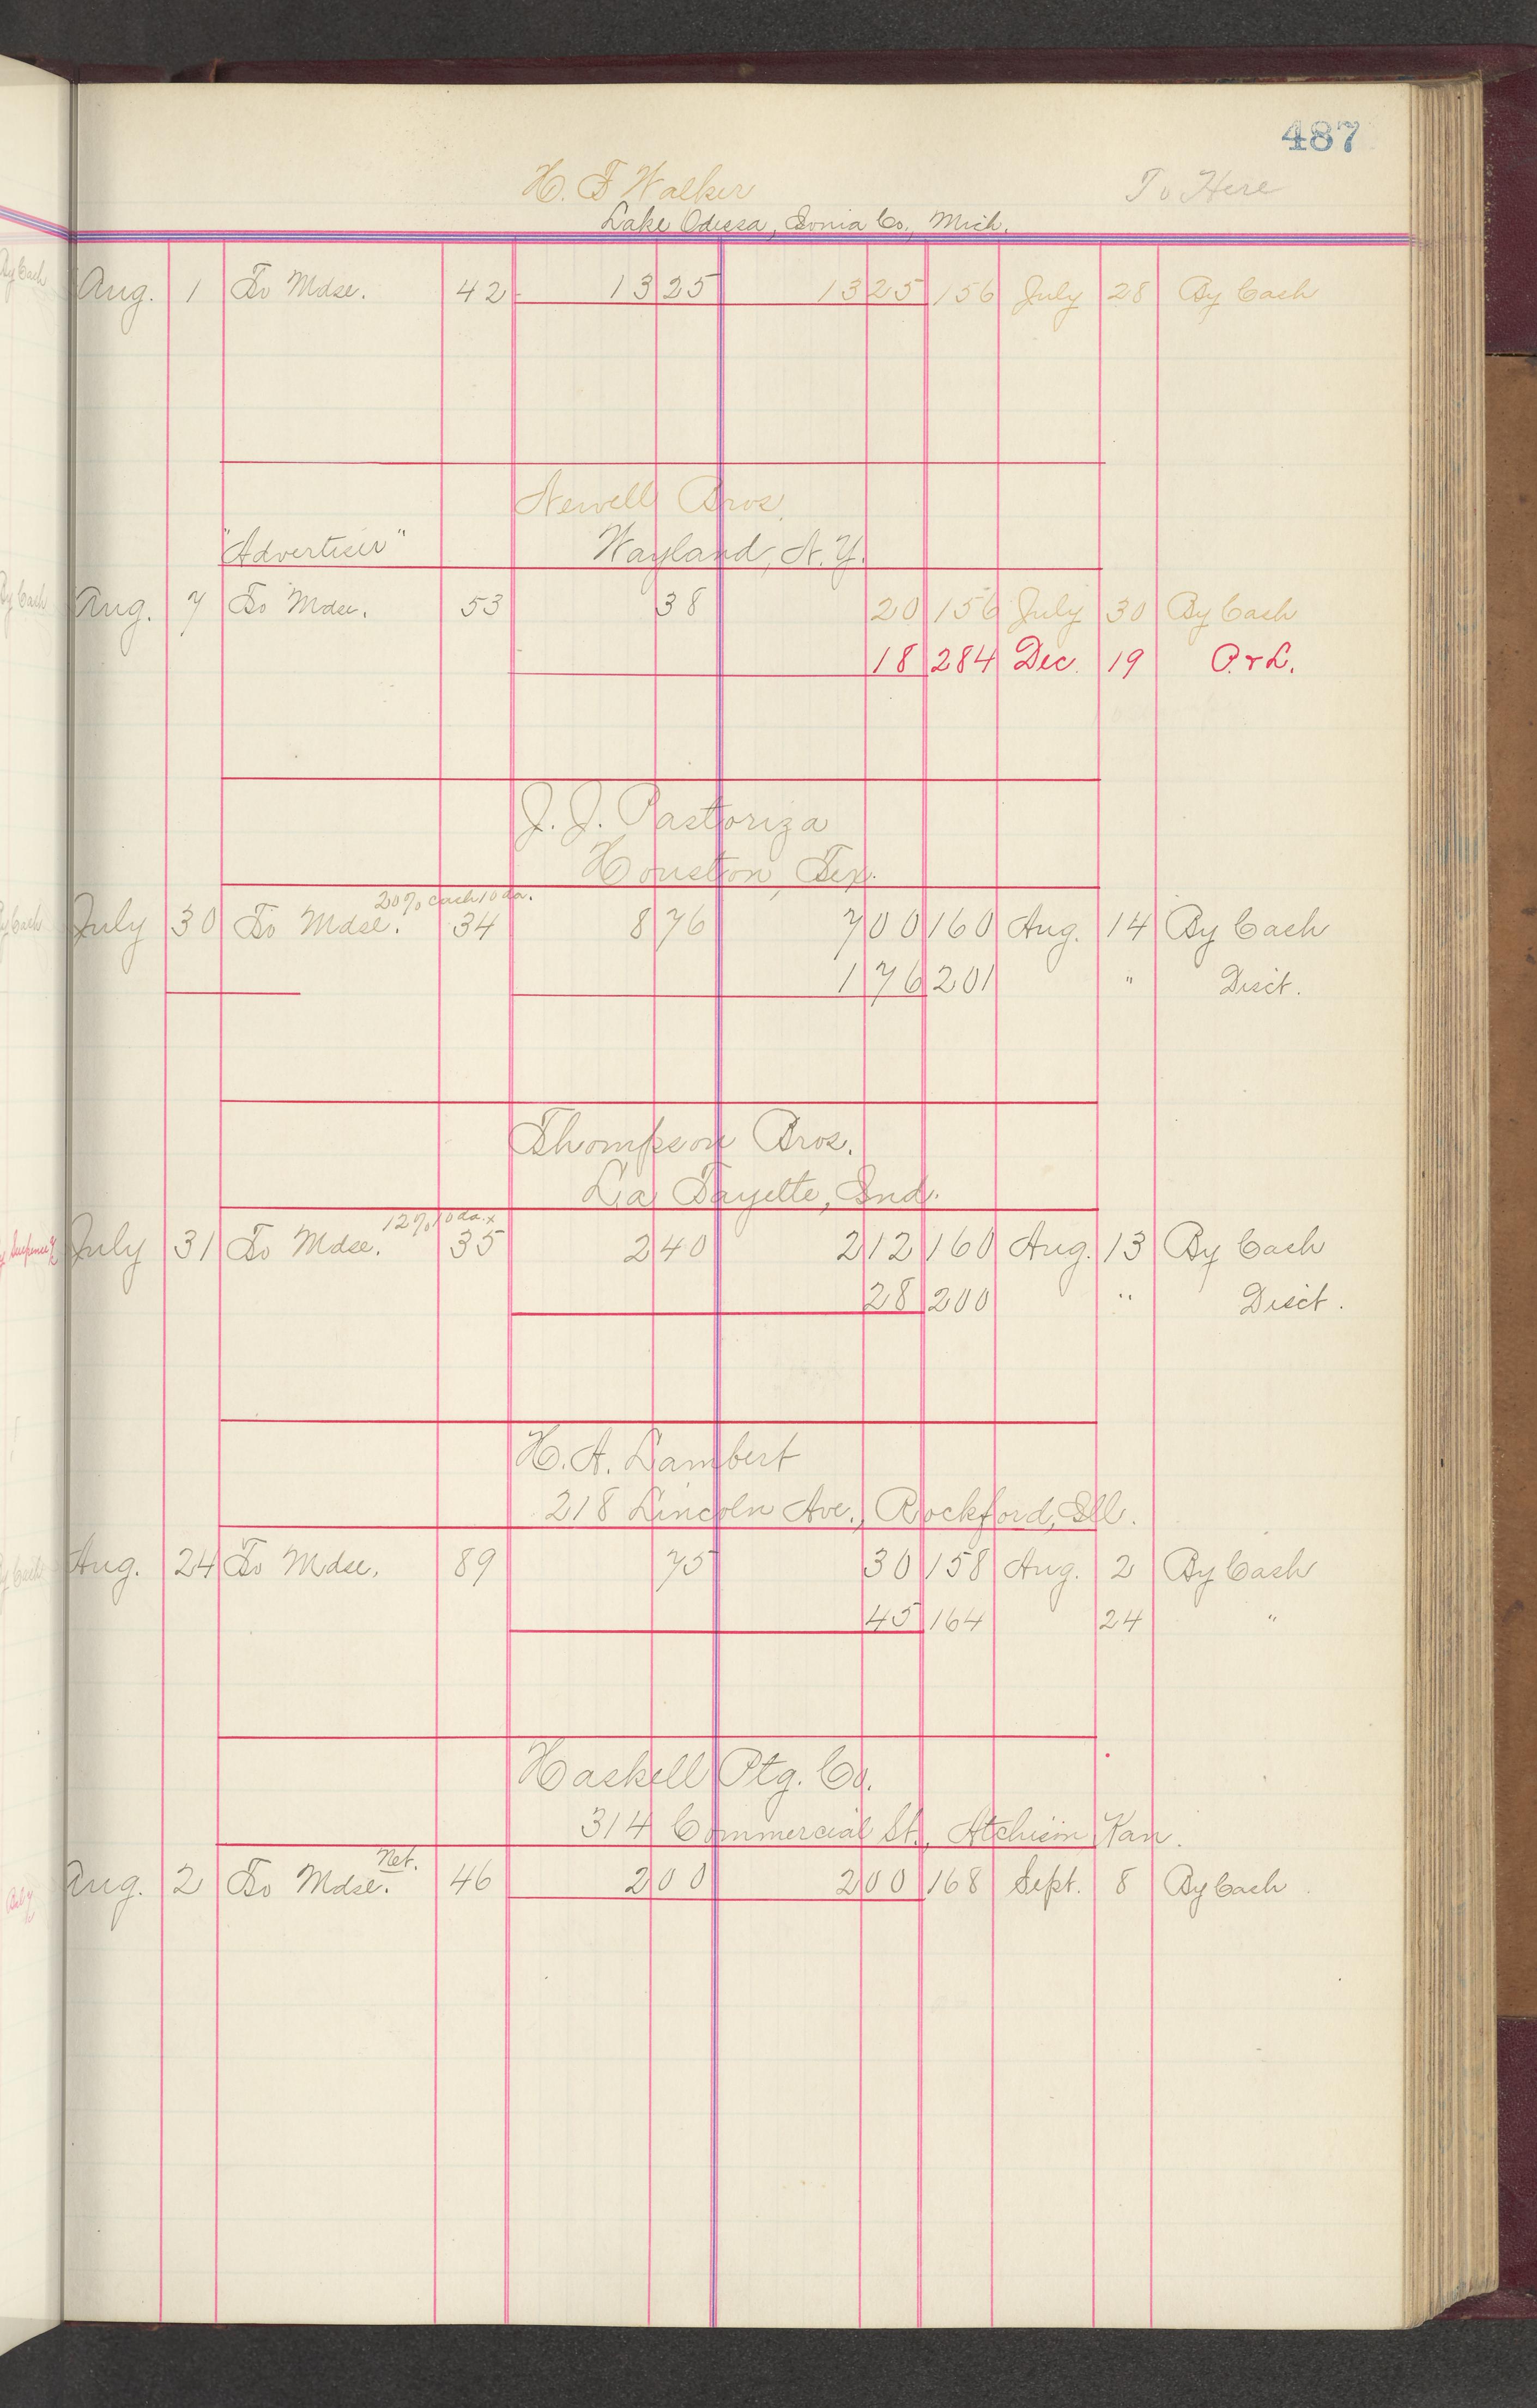 487
H. F Walker To Here
Lake Odessa, Ionia Co., Mich.
Aug. 1 To Mdse. 42 13 25 13 25 156 July 28 By Cash
Newell Bros.
"Advertiser" Wayland, N.Y.
Aug. 7 To Mdse. 53 38 20 156 July 30 By Cash
18 284 Dec. 19 P. & L.
J. J. Pastoriza
Houston, Tex.
20% cash 10 da.
July 30 To Mdse. 34 8 76 7 00 160 Aug. 14 By Cash
1 76 201 " Disct.
Thompson Bros.
La Fayette, Ind.
12% 10 da. x
July 31 To Mdse. 35 2 40 2 12 160 Aug. 13 By Cash
28 200 " Disct.
H. A. Lambert
218 Lincoln Ave., Rockford, Ill.
Aug. 24 To Mdse. 89 75 30 158 Aug. 2 By Cash
45 164 24 "
Haskell Ptg. Co.
314 Commercial St., Atchison Kan.
Net.
Aug. 2 To Mdse. 46 2 00 2 00 168 Sept. 8 By Cash
By Cash
By Cash
By Cash
By Cash